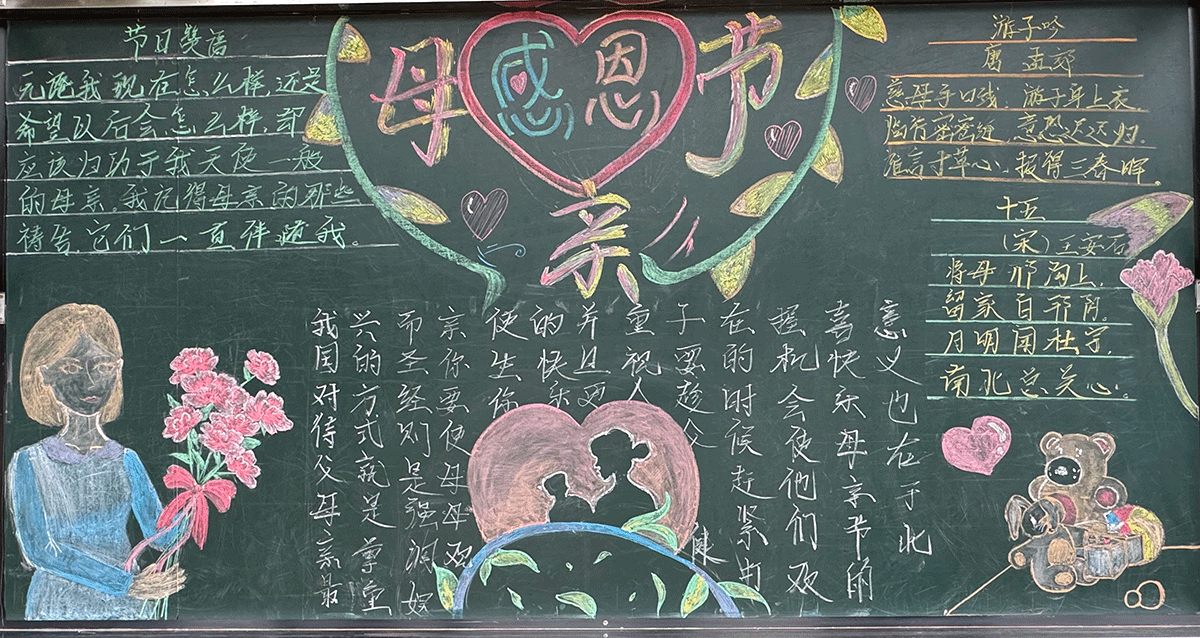 感恩
母亲节
节日
无论我现在怎么样,还是
希望以后会怎么样,都
应该归功于我天使一般
的母亲。我记得母亲的那些
祷告,它们一直伴随我。
游子吟
唐 孟郊
慈母手中线,游子身上衣。
临行密密缝,意恐迟迟归。
谁言寸草心,报得三春晖。
十五
(宋)王安石
将母邗沟上,
留家白邗阴。
月明闻杜宇,
南北总关心。
我国对待父母亲最
兴的方式就是尊重
而圣经则是强调娱
亲你要使母母双
使生你
的快乐
并且要
重视人
子要趁父
健
在的时候赶紧由
提机会使他们双
喜快乐母亲节的
意义也在于此